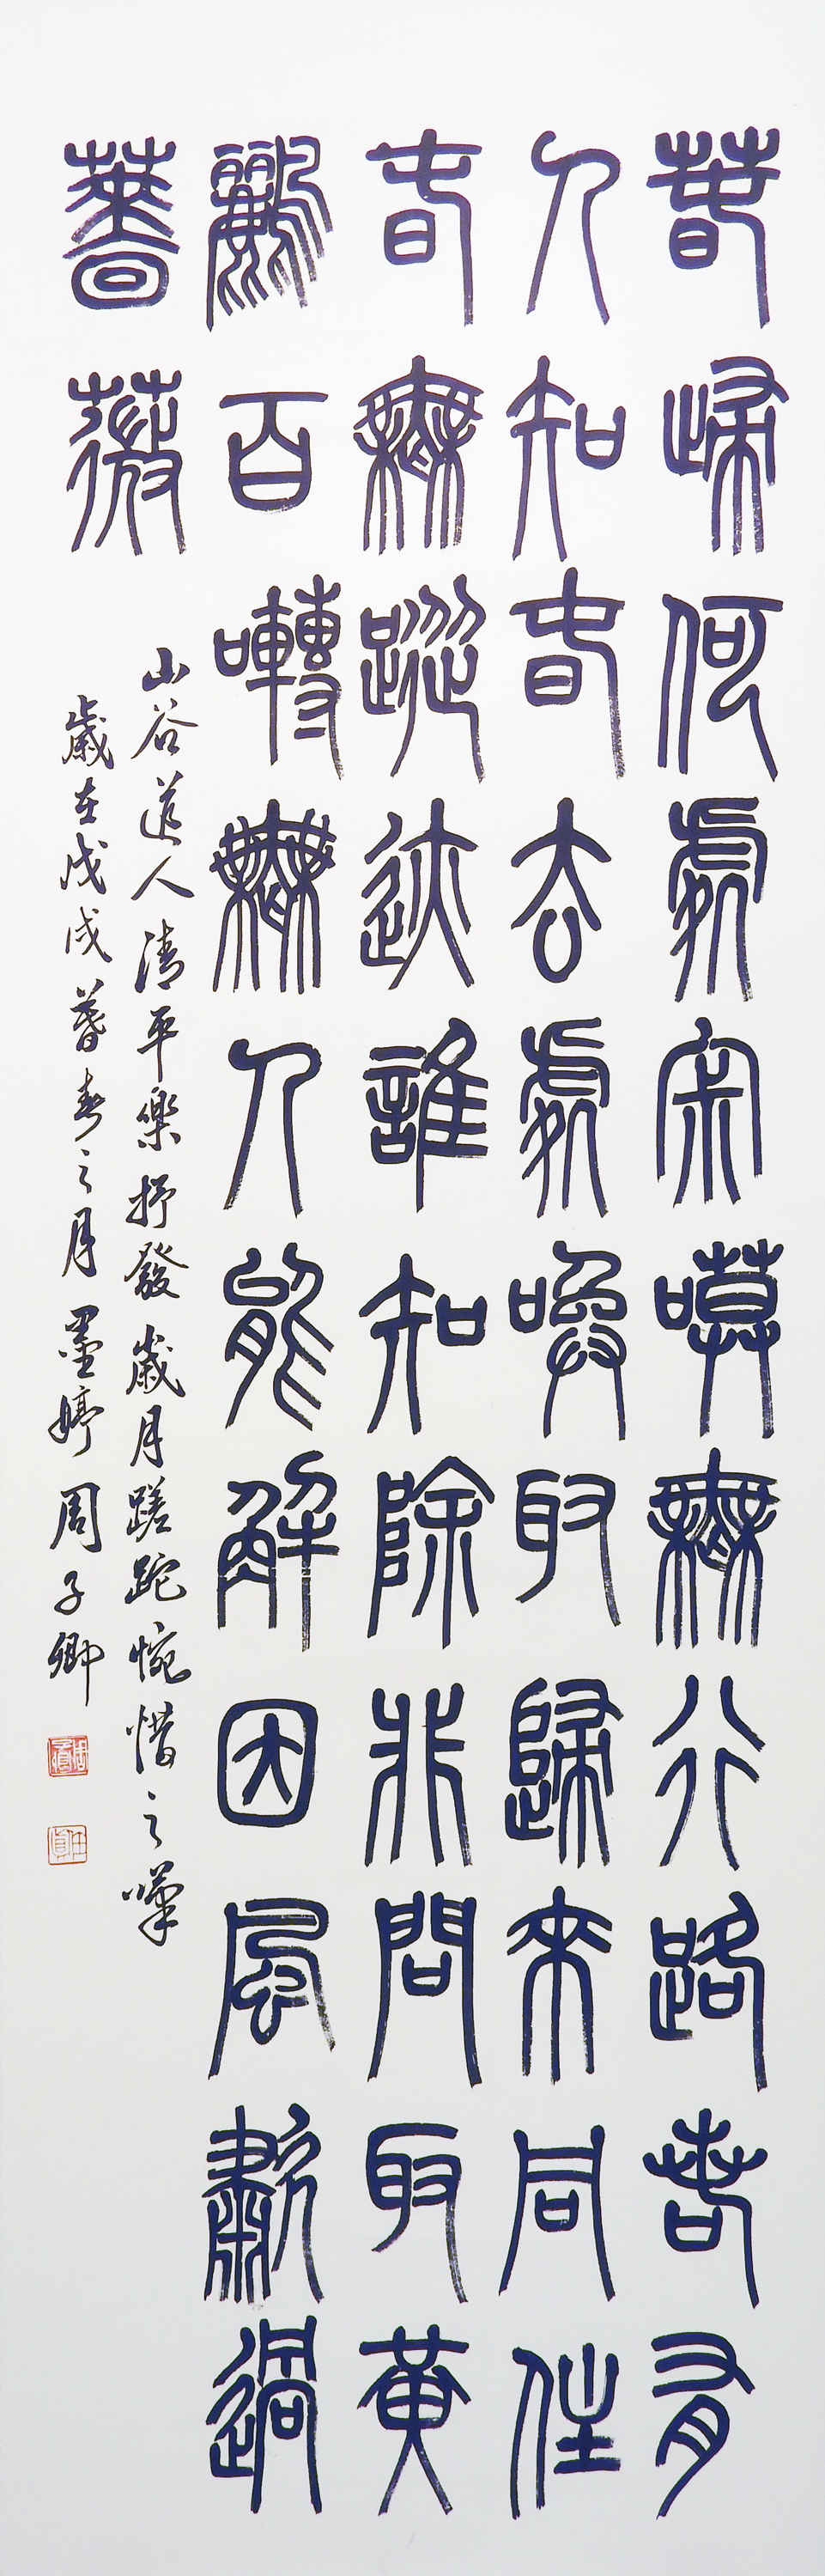 春歸何處寂嗼無行路若有
人知春去處喚取歸來同住
春無蹤迹誰知除非問取黃
鸝百囀無人能解因風歗過
薔薇
山谷道人清平樂抒發歲月蹉跎惋惜之嘆
歲在戊戌暮春之月墨婷周子卿